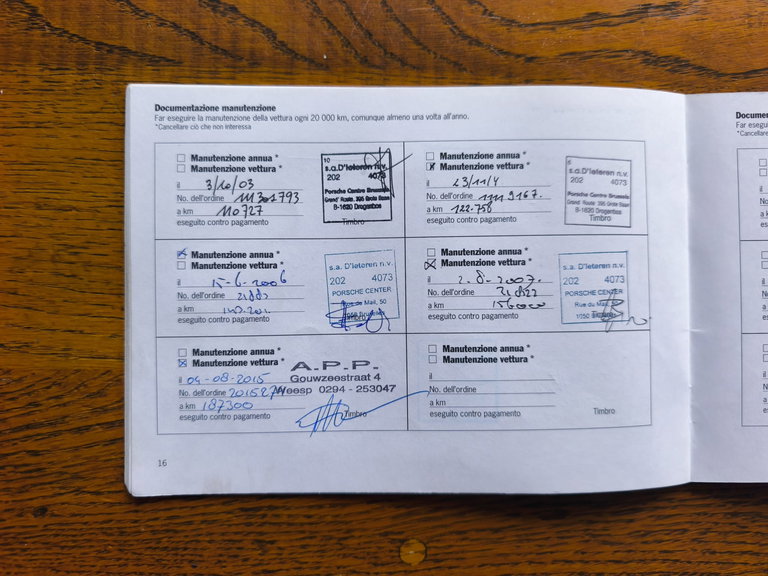 Documentazione manutenzione
Far eseguire la manutenzione della vettura ogni 20 000 km, comunque almeno una volta all'anno.
*Cancellare ciò che non interessa
Manutenzione annua *
Manutenzione vettura *
il 3/10/03
No. dell'ordine
a km 110727
eseguito contro pagamento
Timbro
10
s.a. D'Ieteren n.v.
202 4073
Porsche Centre Brussels
Grand' Route, 395 Grote Baan
B-1620 Drogenbos
Manutenzione annua *
Manutenzione vettura *
il 23/11/4
No. dell'ordine
a km 122.758
eseguito contro pagamento
Timbro
s.a. D'Ieteren n.v.
202 4073
Porsche Centre Brussels
Grand' Route, 395 Grote Baan
B-1620 Drogenbos
Manutenzione annua *
Manutenzione vettura *
il 15-6-2006
No. dell'ordine
a km
eseguito contro pagamento
Timbro
s.a. D'Ieteren n.v.
202 4073
PORSCHE CENTER
Rue du Mail, 50
1050 Bruxelles
Manutenzione annua *
Manutenzione vettura *
il 2.8.2007.
No. dell'ordine
a km 156000
eseguito contro pagamento
Timbro
s.a. D'Ieteren n.v.
202 4073
PORSCHE CENTER
Rue du Mail,
1050
Manutenzione annua *
Manutenzione vettura *
il 04-08-2015
No. dell'ordine
a km 187300
eseguito contro pagamento
Timbro
A.P.P.
Gouwzeestraat 4
Weesp 0294 - 253047
Manutenzione annua *
Manutenzione vettura *
il
No. dell'ordine
a km
eseguito contro pagamento
Timbro
16